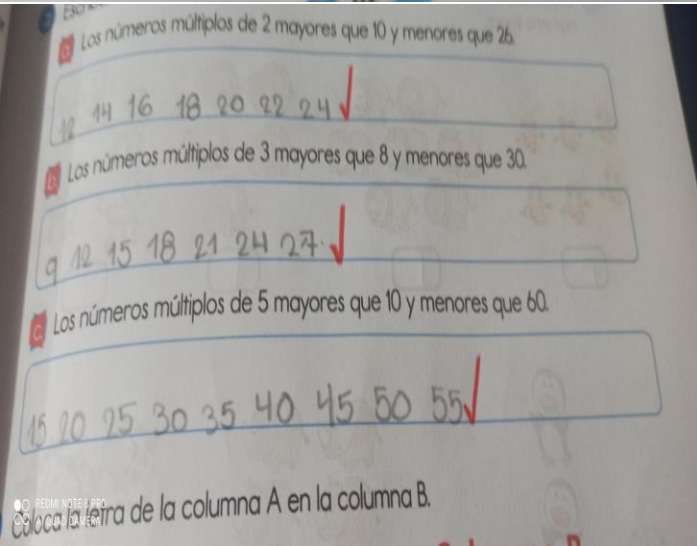 a. Los números múltiplos de 2 mayores que 10 y menores que 26.
12 14 16 18 20 22 24
b. Los números múltiplos de 3 mayores que 8 y menores que 30.
9 12 15 18 21 24 27.
c. Los números múltiplos de 5 mayores que 10 y menores que 60.
15 20 25 30 35 40 45 50 55
Coloca la letra de la columna A en la columna B.
REDMI NOTE 8 PRO
AI QUAD CAMERA